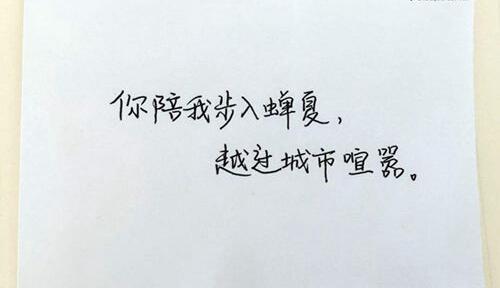 你陪我步入蝉夏，
越过城市喧嚣。